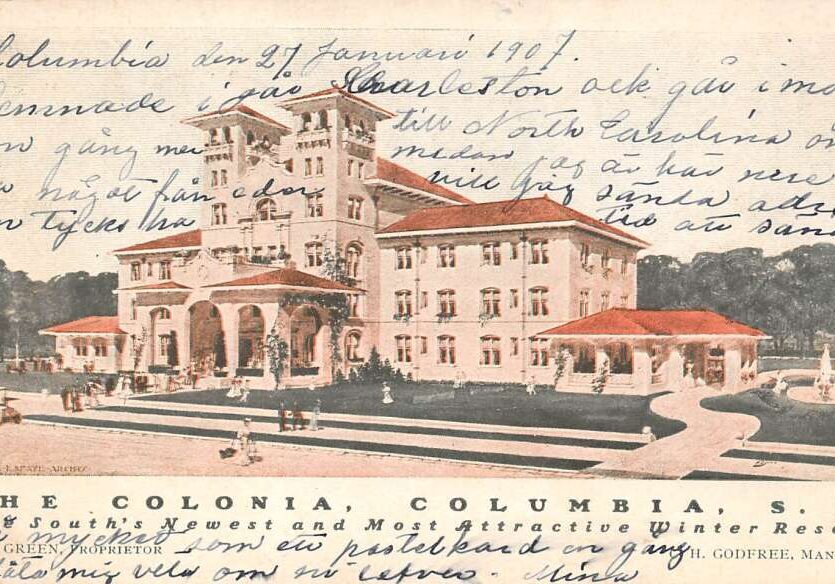 Columbia den 27 Januari 1907.
lemnade i går Charleston ock går i mo
en gång mer till North Carolina
medan jag är här nere
något från eder vill jag sända
n tycks ha tid att sän
LAFAYE ARCHT
THE COLONIA, COLUMBIA, S.
South's Newest and Most Attractive Winter Reso
GREEN, PROPRIETOR H. GODFREE, MAN
mycket som ett postelkard en gång
tåla mig veta om ni lefver. Mina